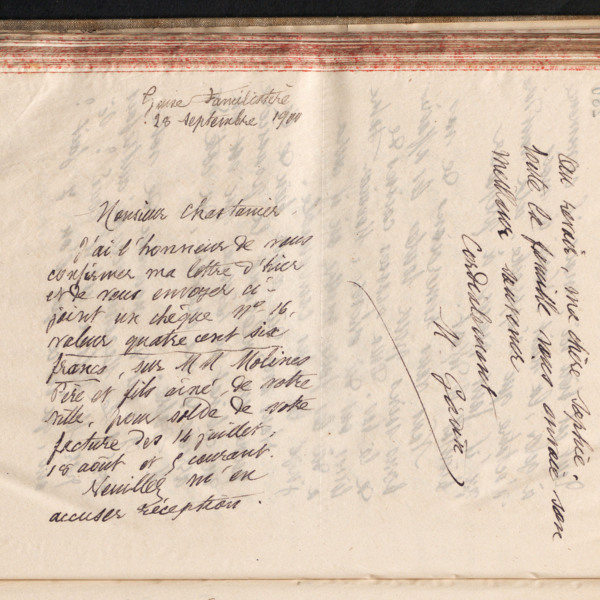 Guise Familistère
28 septembre 1900
Monsieur Chastanier
J'ai l'honneur de vous
confirmer ma lettre d'hier
et de vous envoyer ci-
joint un chèque n° 16,
valeur quatre cent six
francs, sur MM Molines
Père et fils aîné de votre
ville, pour solde de votre
facture des 14 juillet,
18 août et 5 courant.
Veuillez m'en
accuser réception.
Au revoir, ma chère Sophie.
Toute la famille vous envoie son
meilleur souvenir
Cordialement
M. Godin